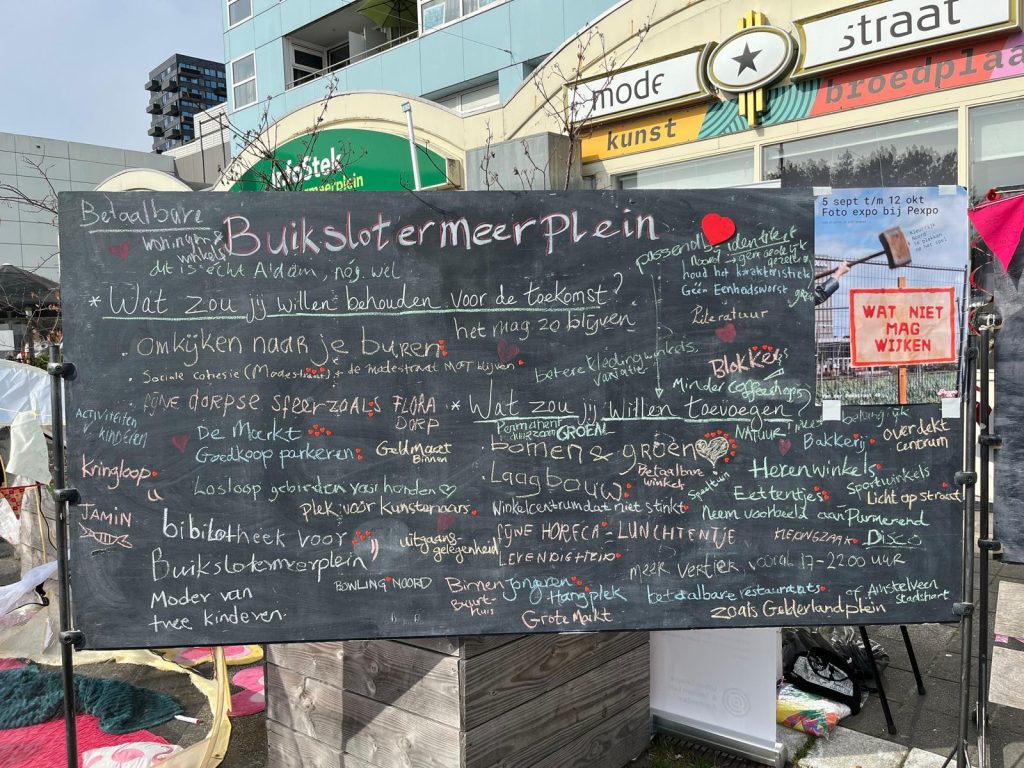 mode
straat
kunst
broedplaa
Betaalbare
woningen &
winkels
BuikslotermeerPlein
dit is echt A'dam, nóg wel
* Wat zou jij willen behouden voor de toekomst?
het mag zo blijven
. omkijken naar je buren
. Sociale cohesie (Modestraat) & de modestraat MOET blijven
. fijne dorpse sfeer zoals FLORA
DORP
ACTIVITEITEN
kinderen
De Markt
Goedkoop parkeren
Geldmaat
Binnen
Kringloop
Losloop gebieden voor honden
plek voor kunstenaars
JAMIN
bibilotheek voor
Buikslotermeerplein
Moder van
twee kinderen
uitgaans-
gelegenheid
BOWLING NOORD
passend bij identiteit
Noord
houd het karakteristiek
Géén Eenheidsworst
Literatuur
Blokker
betere kledingwinkels,
variatie
Minder coffeeshops
* Wat zou jij willen toevoegen?
Permanent
duurzaam GROEN
. bomen & groen
NATUUR
belangrijk
Bakkerij
overdekt
centrum
. Laagbouw
Betaalbare
winkels
Speeltuin
Herenwinkels
Eettentjes
Sportwinkels
Licht op straat
Winkelcentrum dat niet stinkt
Neem voorbeeld aan Purmerend
FIJNE HORECA - LUNCHTENTJE
Dixo
LEVENDIGHEID
meer vertier, vooral 17-22.00 uur
Binnen
Buurt-
huis
Jongeren
Hangplek
Grote Markt
betaalbare restaurants
of Amstelveen
stadshart
zoals Gelderlandplein
5 sept t/m 12 okt
Foto expo bij Pexpo
WAT NIET
MAG
WIJKEN